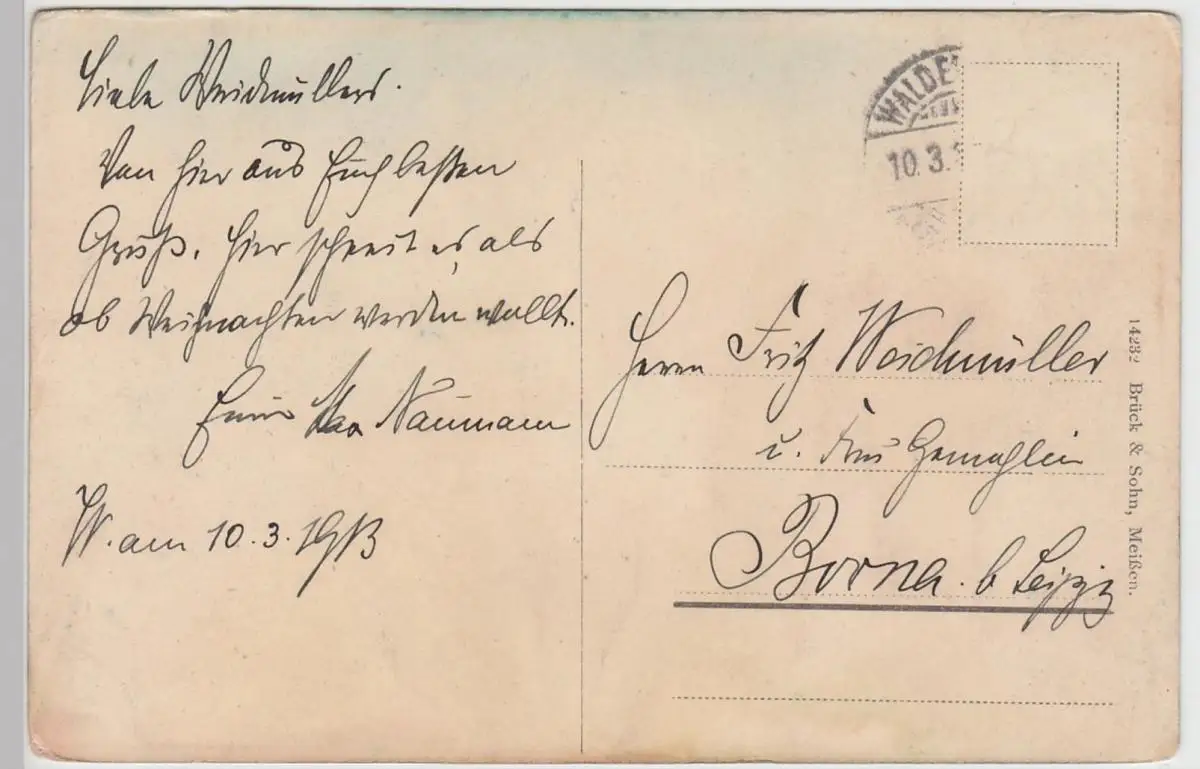 Liebe Weidmüllers.
Von hier aus Euch besten
Gruß. Hier schneit es, als
ob Weihnachten werden wollte.
Euer Max Naumann
W. am 10.3.1913
WALDE
10.3.1
Herrn Fritz Weidmüller
u. Frau Gemahlin
Borna b Leipzig
14232 Brück & Sohn, Meißen.